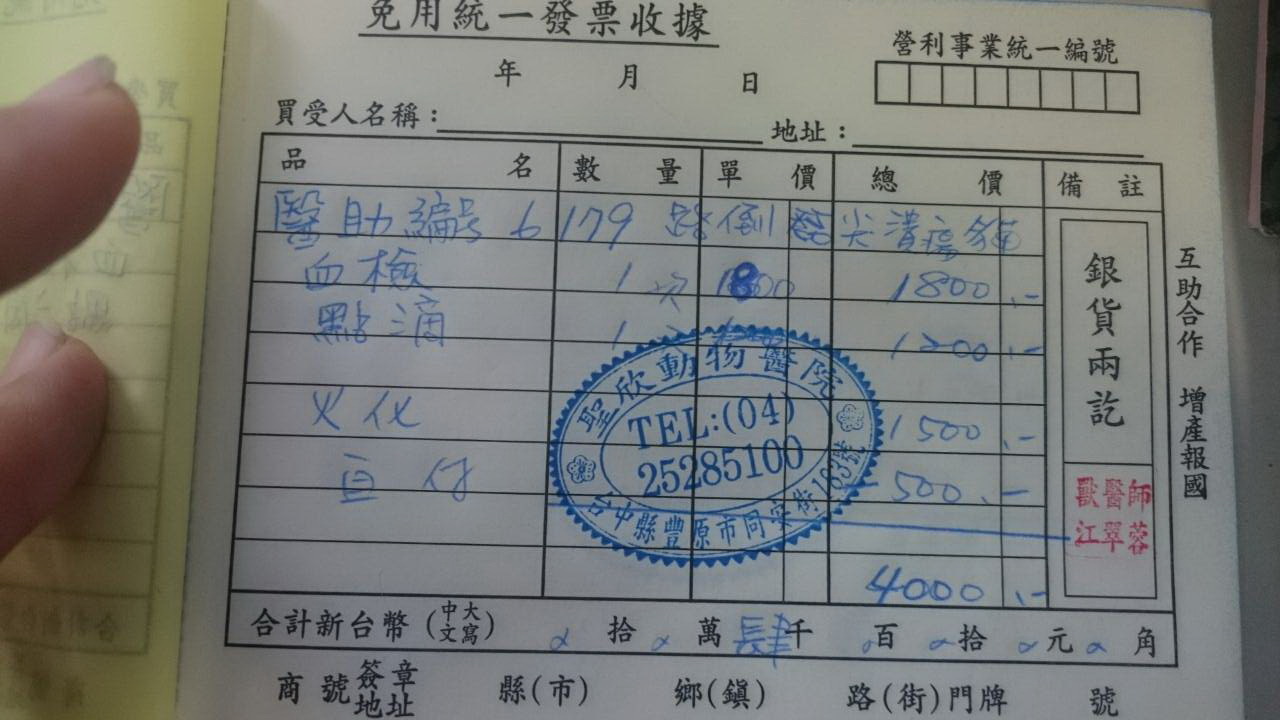 免用統一發票收據
營利事業統一編號
年 月 日
買受人名稱：
地址：
品名 數量 單價 總價 備註
醫助編號 6179 路倒 尖潰瘍貓
血檢 1次 1800 1800.-
點滴 1 1200.-
火化 1500.-
自付 500.-
4000.-
銀貨兩訖
獸醫師
江翠蓉
互助合作 增產報國
聖欣動物醫院
TEL:(04)
25285100
台中縣豐原市同安街183號
合計新台幣(中文大寫) 拾 萬 肆千 百 拾 元 角
商號簽章地址 縣(市) 鄉(鎮) 路(街)門牌 號